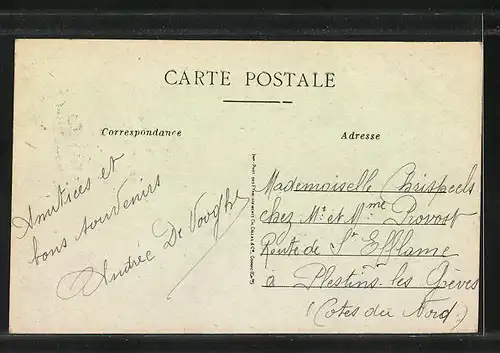 CARTE POSTALE
Correspondance
Adresse
Amitiées et
bons souvenirs
Andrée De Vooght
Mademoiselle Chrispeels
chez Mr et Mme Provost
Route de St Efflame
à Plestins-les Grèves
(Cotes du Nord.)